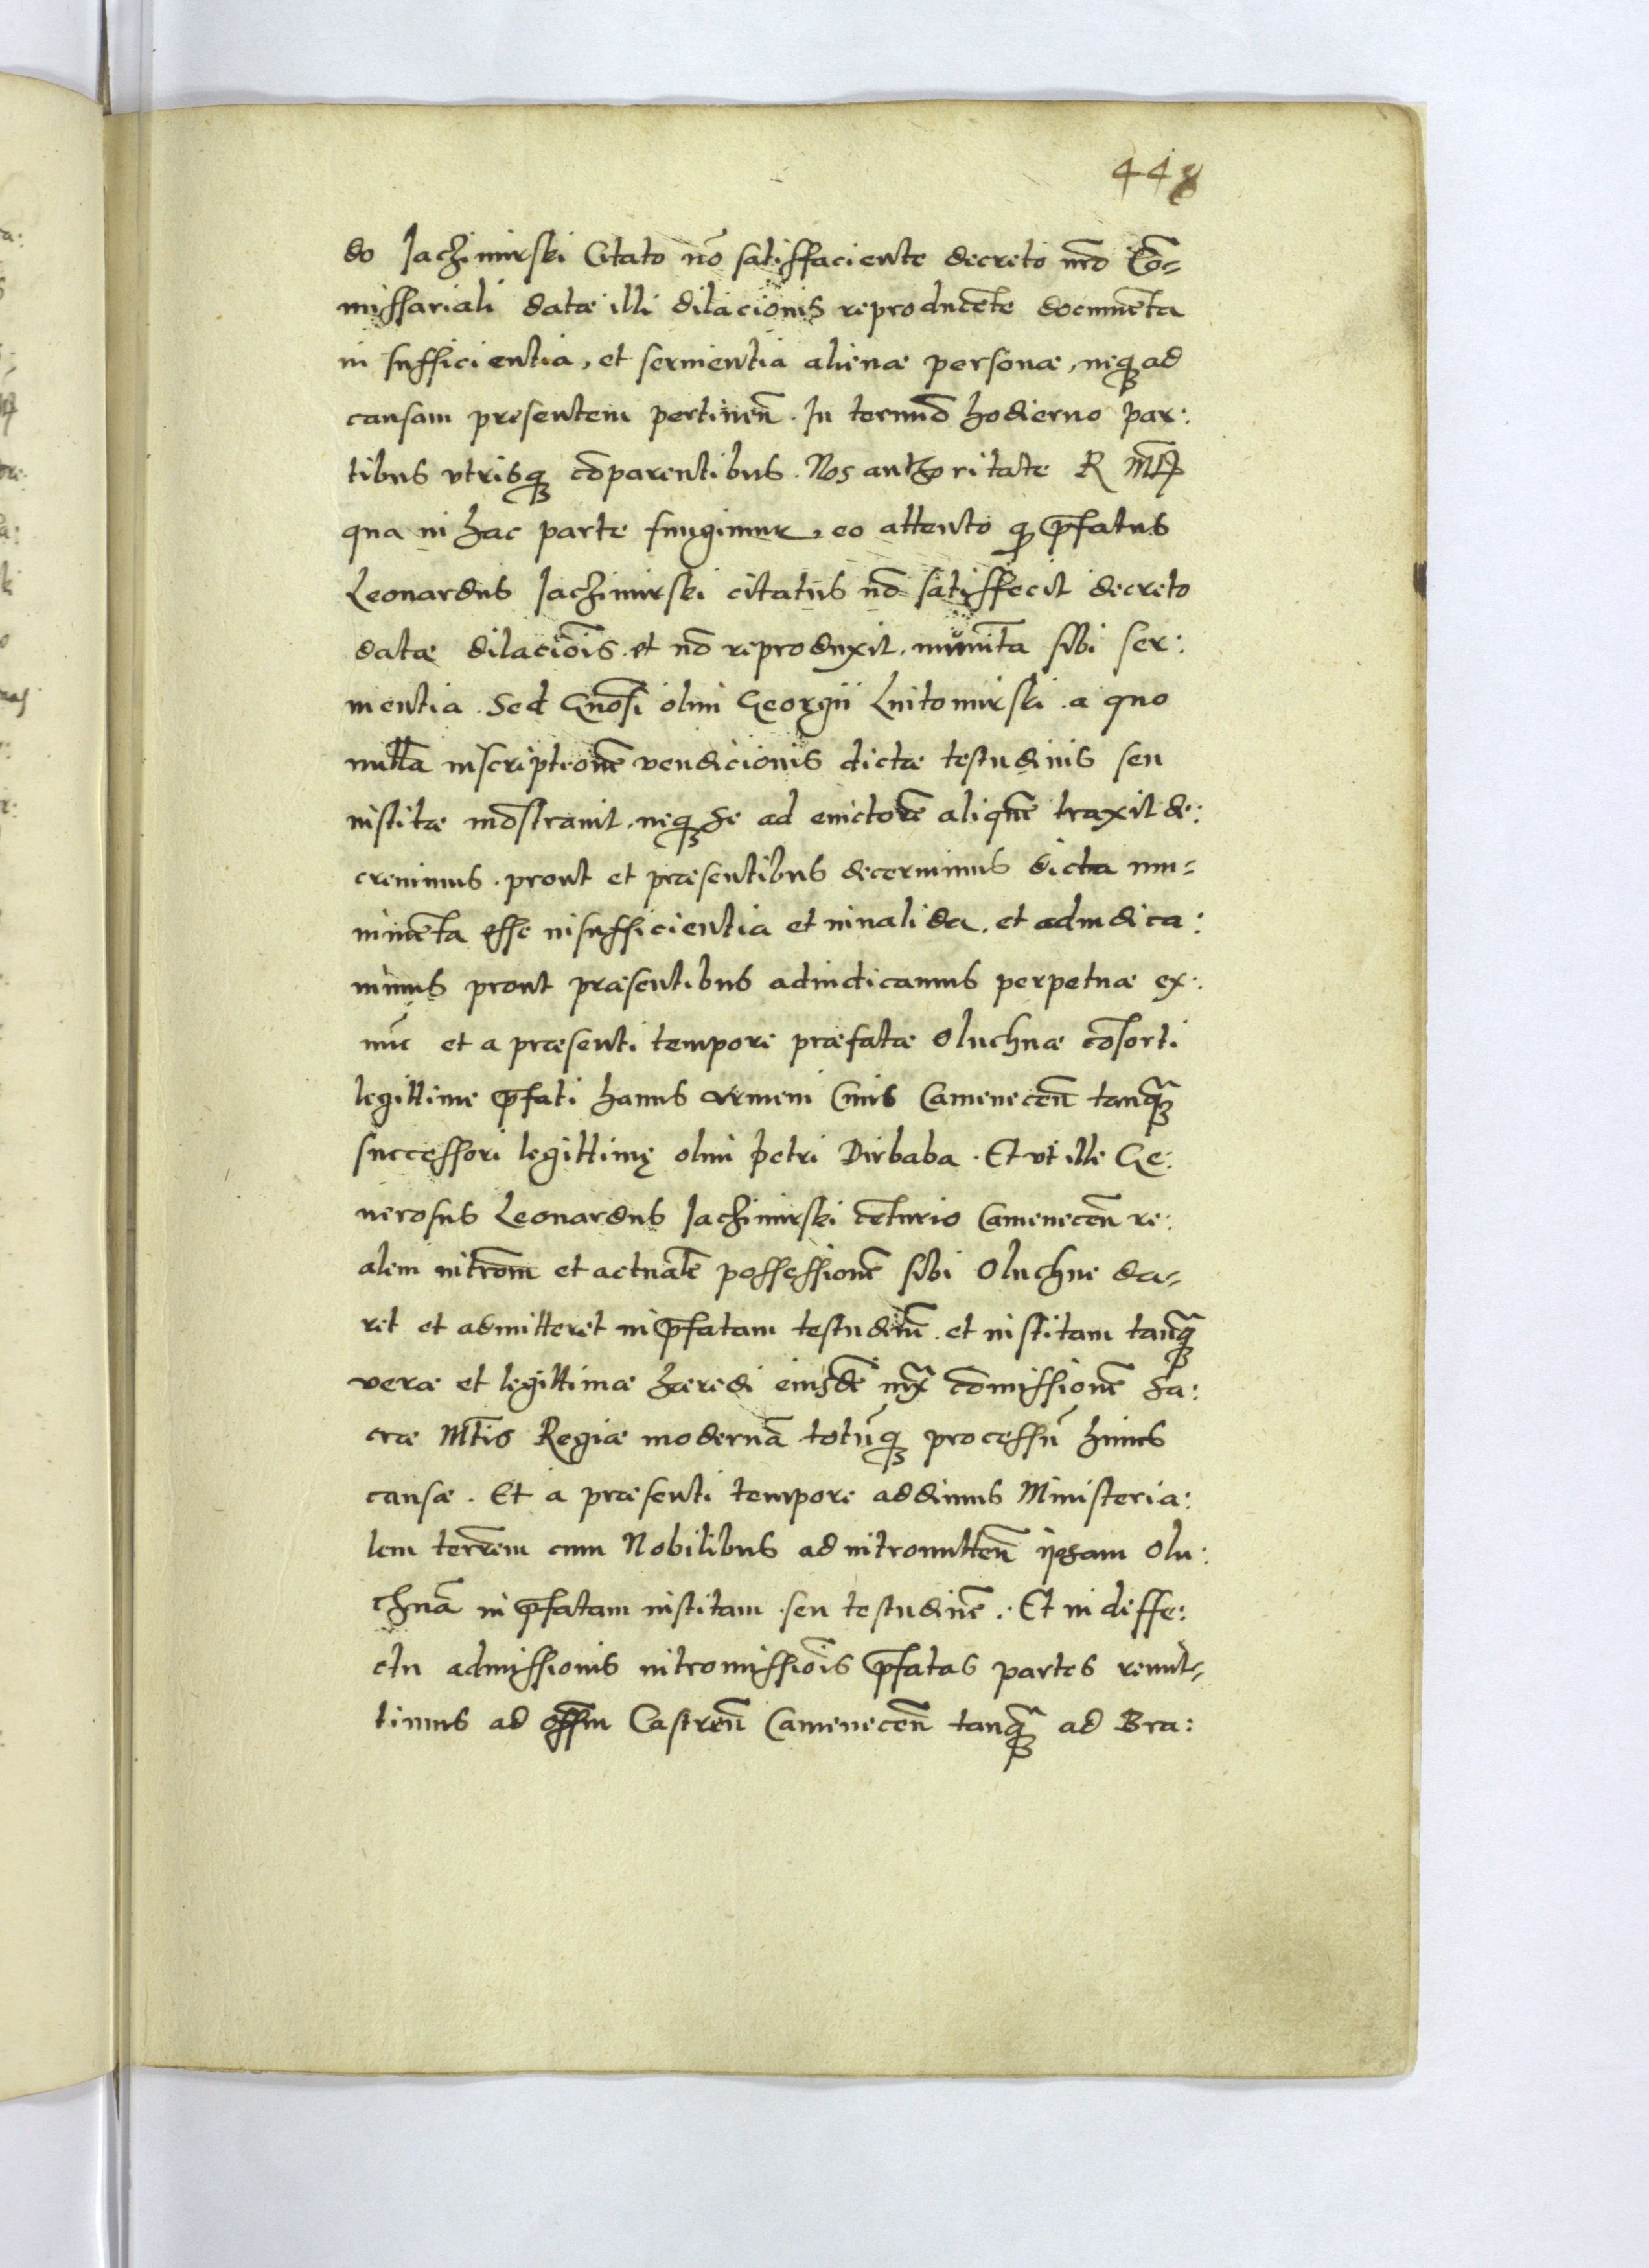 448
do Jachimirski Citato nō satisfaciente decreto nrō Cō-
missariali datæ illi dilacionis reproducēte documēta
in sufficientia, et seruientia alienæ personæ, neq₃ ad
causam presentem pertineñ. In termiō hodierno par:
tibus vtrisq₃ cōparentibus. Nos authoritate R
qua in hac parte fungimur, eo attento q p̄fatus
Leonardus Jachimirski citatus nō satisfecit decreto
datæ dilaciōis et nō reproduxit, munimēta sibi ser:
uientia. Sed Gnōsi olim Georgii Lutomirski a quo
nullā inscriptionē vendicionis dictæ testudinis seu
institæ mōstrauit, neq₃ se ad euictorē aliquē traxit de:
creuimus, prout et præsentibus decernimus dicta mu-
nimēta esse insufficientia et inualida, et adiudica:
uimus prout præsentibus adiudicamus perpetuæ ex:
nūc et a præsenti tempore præfatæ Oluchnæ cōsorti
legittime p̄fati hanus Armeni Ciuis Cameneceñ tanq₃
successori legittimę olim Petri Dirbaba. Et vt ille Ge:
nerosus Leonardus Jachimirski cēturio Cameneceñ re:
alem introm̄ et actualē possessionē sibi Oluchne da-
ret et admitteret in p̄fatam testudinē et institam tanq₃
veræ et legittimæ hæredi eiusdē iux̄ cōmissionē Sa:
cræ Mt̄is Regiæ modernā totūq₃ processū huius
causæ. Et a præsenti tempore addimus Ministeria:
lem terrēm cum Nobilibus ad intromitteñ ipsam Olu:
chnā in p̄fatam institam seu testudinē. Et in deffe:
ctu admissionis intromissiōis p̄fatas partes remit-
timus ad off̄m Castreñ Cameneceñ tanq₃ ad Bra: